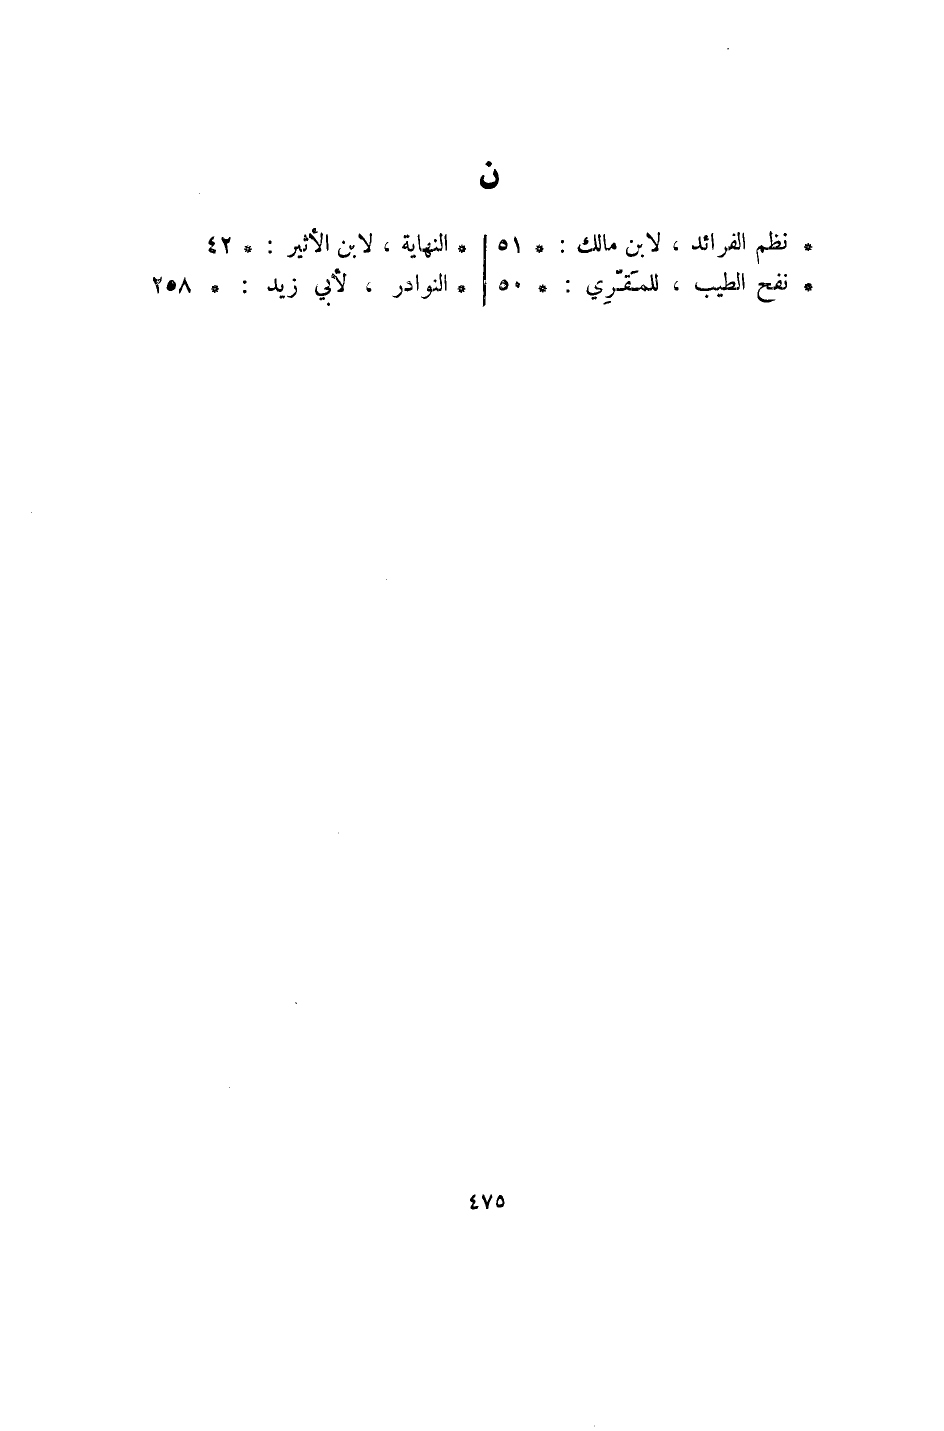 ن
* نظم الفرائد ، لابن مالك : * ٥١
* نفح الطيب ، للمَقّرِي : * ٥٠
* النهاية ، لابن الأثير : * ٤٢
* النوادر ، لأبي زيد : * ٢٥٨
٤٧٥